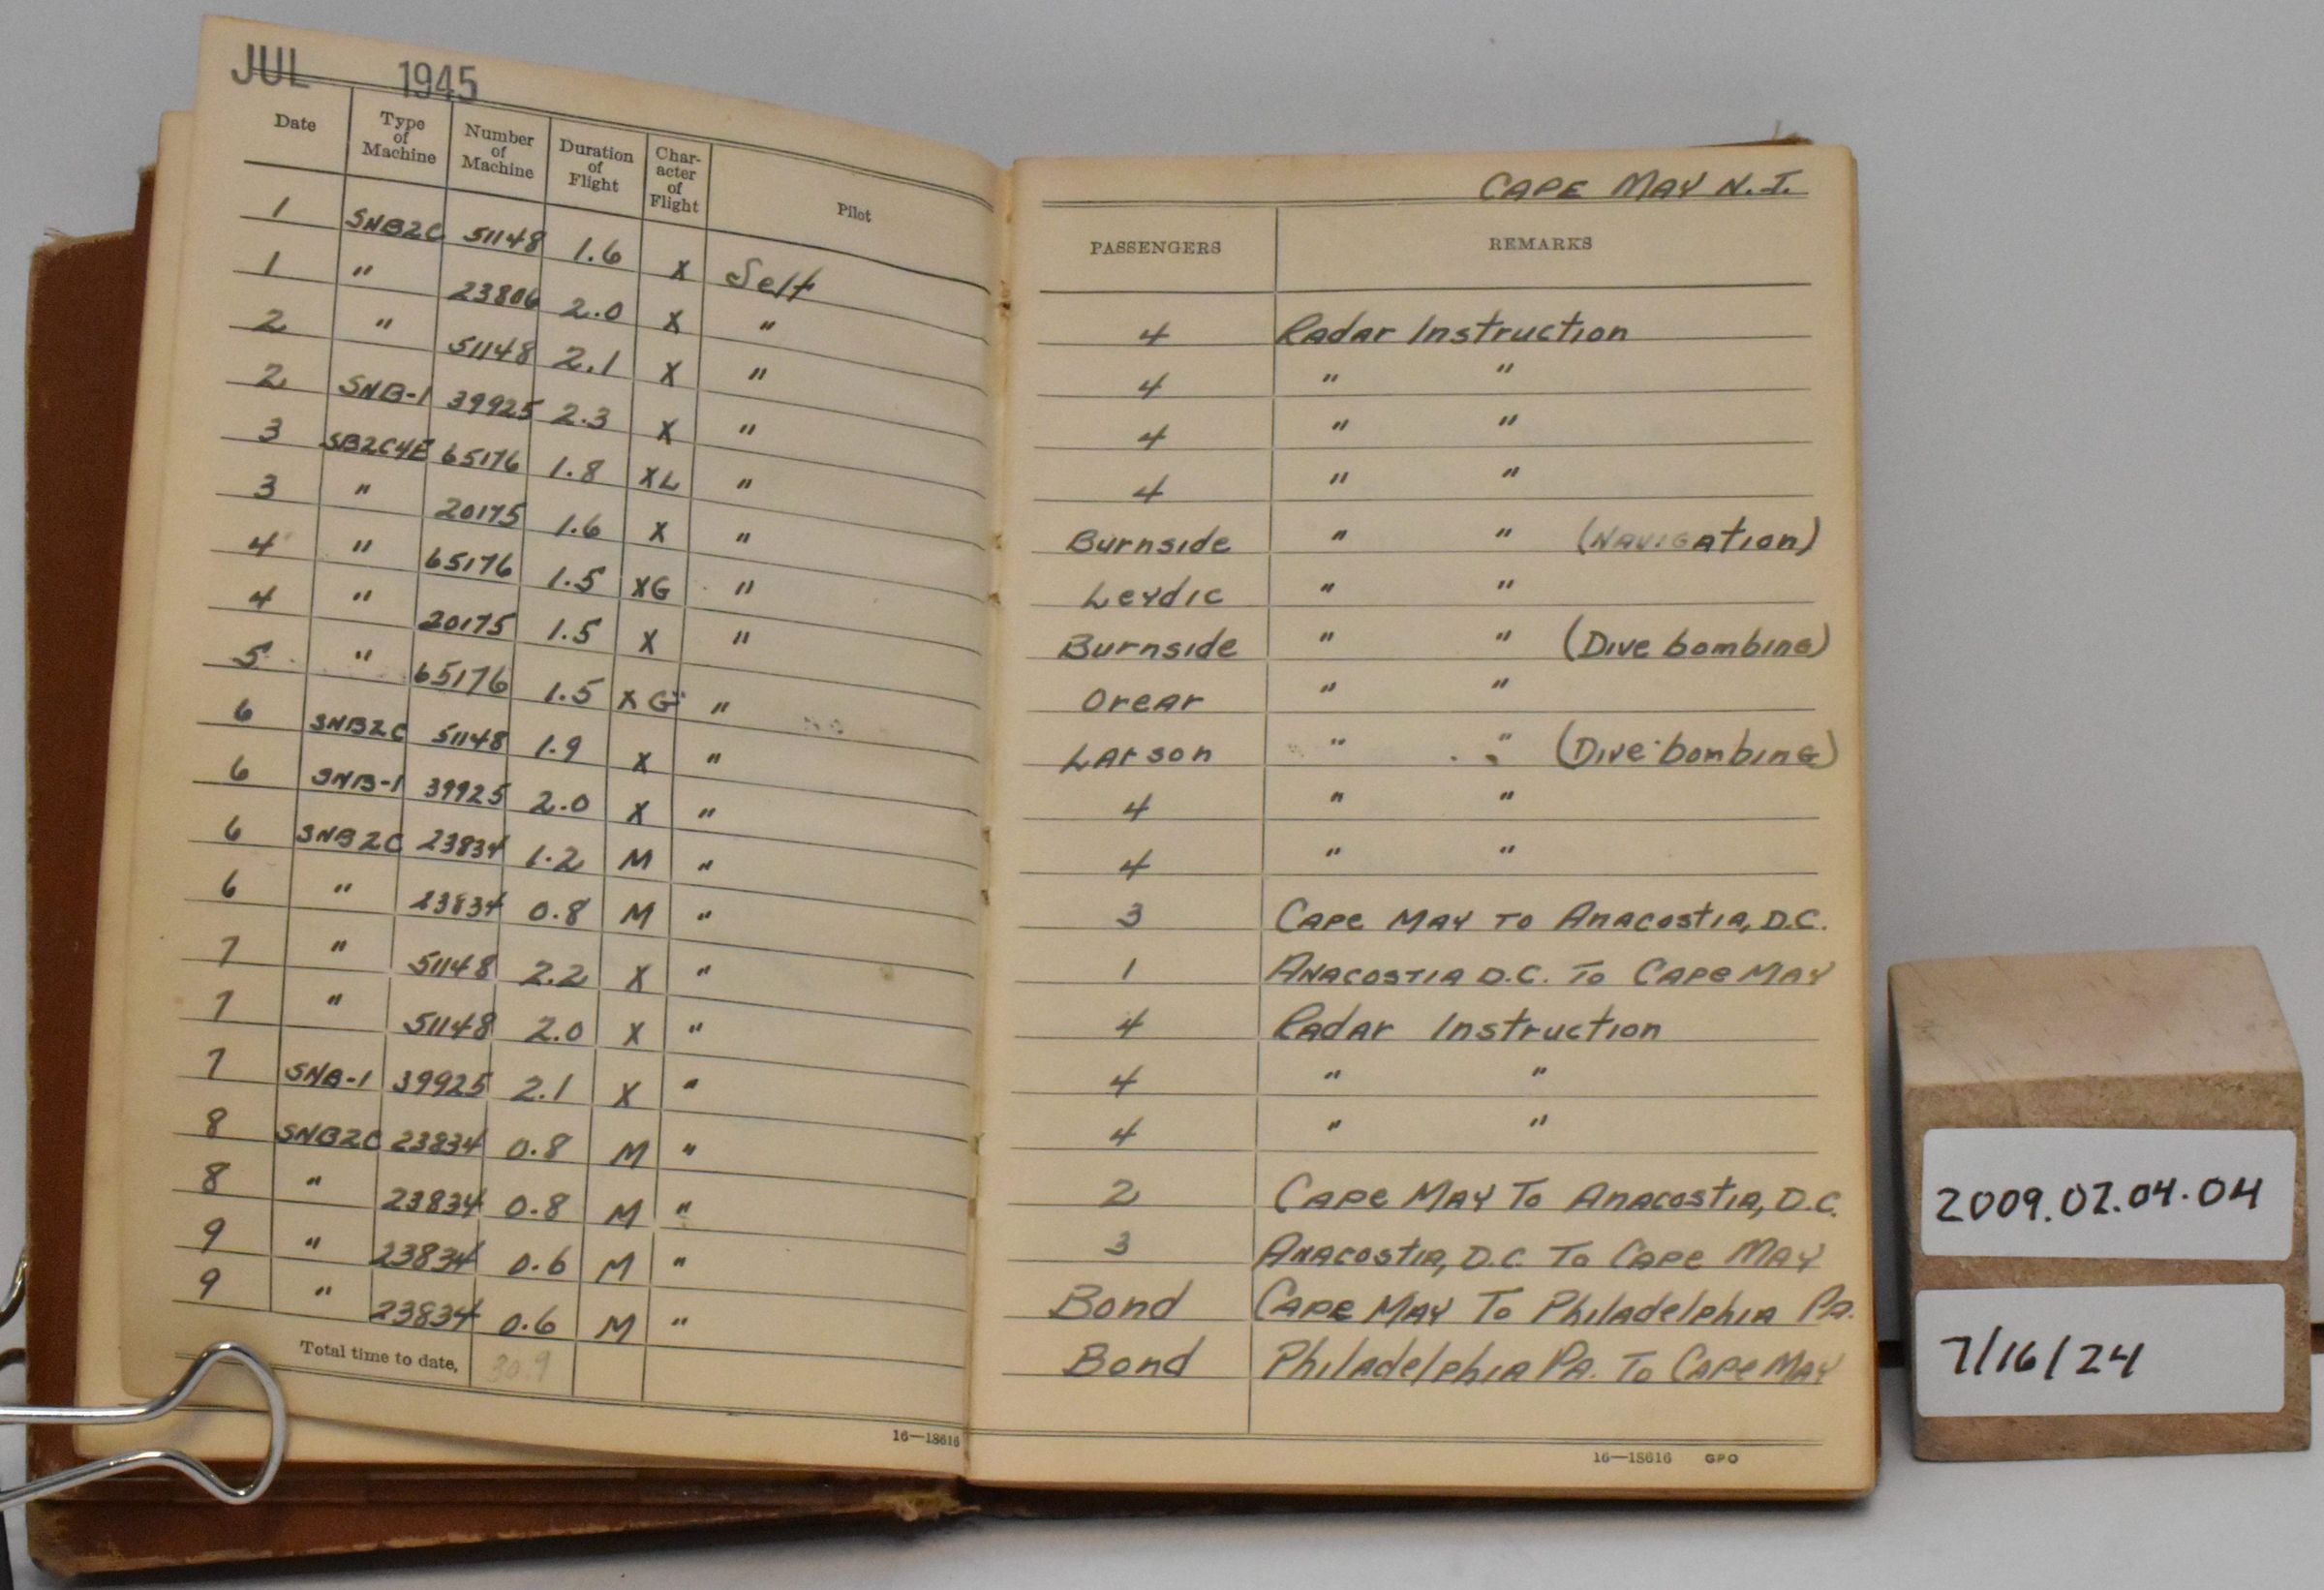 JUL 1945
Date Type of Machine Number of Machine Duration of Flight Char-acter of Flight Pilot
1 SNB2C 51148 1.6 X Self
1 " 23806 2.0 X "
2 " 51148 2.1 X "
2 SNB-1 39925 2.3 X "
3 SB2C4E 65176 1.8 XL "
3 " 20175 1.6 X "
4 " 65176 1.5 XG "
4 " 20175 1.5 X "
5 " 65176 1.5 XG "
6 SNB2C 51148 1.9 X "
6 SNB-1 39925 2.0 X "
6 SNB2C 23834 1.2 M "
6 " 23834 0.8 M "
7 " 51148 2.2 X "
7 " 51148 2.0 X "
7 SNB-1 39925 2.1 X "
8 SNB2C 23834 0.8 M "
8 " 23834 0.8 M "
9 " 23834 0.6 M "
9 " 23834 0.6 M "
Total time to date, 30.9
16—18616
CAPE MAY N.J.
PASSENGERS REMARKS
4 Radar Instruction
4 " "
4 " "
4 " "
Burnside " " (Navigation)
Leydic " "
Burnside " " (Dive bombing)
Orear " "
Larson " " (Dive bombing)
4 " "
4 " "
3 Cape May To Anacostia, D.C.
1 Anacostia D.C. To Cape May
4 Radar Instruction
4 " "
4 " "
2 Cape May To Anacostia, D.C.
3 Anacostia, D.C. To Cape May
Bond Cape May To Philadelphia Pa.
Bond Philadelphia Pa. To Cape May
16—18616 GPO
2009.02.04.04
7/16/24